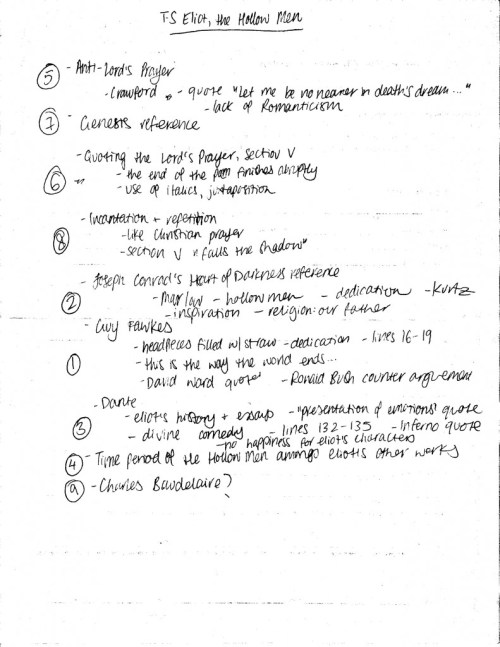 T-S Eliot, the Hollow Men
⑤ - Anti-Lord's Prayer
- Crawford - quote "Let me be no nearer in death's dream..."
- lack of Romanticism
⑦ - Genesis reference
- Quoting the Lord's Prayer, section V
⑥ - the end of the finishes abruptly
- use of italics, juxtaposition
- Incantation + repetition
⑧ - like Christian prayer
- section V "falls the shadow"
- Joseph Conrad's Heart of Darkness reference
② - Marlow - hollow men - dedication - Kurtz
- inspiration - religion: our father
- Guy Fawkes
- headpieces filled w/ straw - dedication - lines 16-19
① - this is the way the world ends...
- David Ward quote - Ronald Bush counter arguement
- Dante
③ - eliot's history + essays - "presentation of emotions" quote
- divine comedy - lines 132-135 - Inferno quote
- no happiness for eliot's characters
④ - Time period of the Hollow Men amongs eliot's other works
⑨ - Charles Baudelaire?